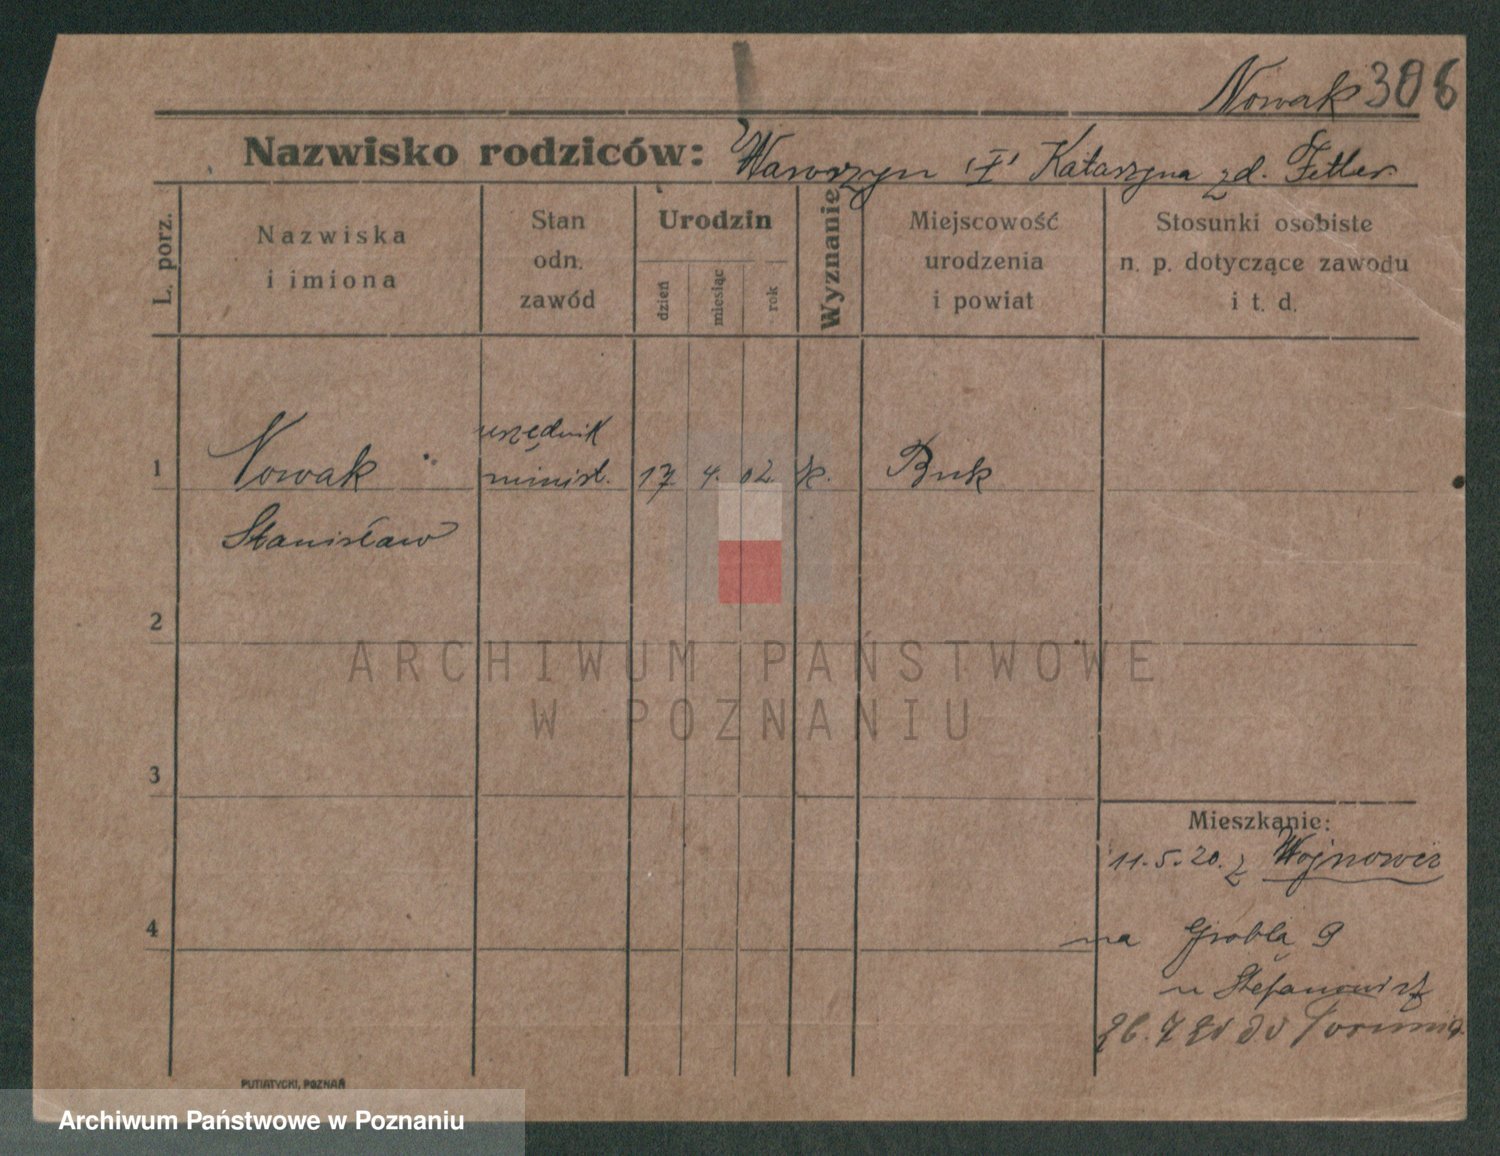 Nowak 306
Nazwisko rodziców: Wawrzyn 'I' Katarzyna zd. Fetler
L. porz.
Nazwiska
i imiona
Stan
odn.
zawód
Urodzin
dzień
miesiąc
rok
Wyznanie
Miejscowość
urodzenia
i powiat
Stosunki osobiste
n. p. dotyczące zawodu
i t. d.
urzędnik
1 Nowak minist. 17 4. 02 k. Buk
Stanisław
2
ARCHIWUM PAŃSTWOWE
W POZNANIU
3
Mieszkanie:
11.5.20. z Wojnowic
4
na Grobla 9
u Stefanowicz
26.7 20 do Torunia
PUTIATYCKI, POZNAŃ
Archiwum Państwowe w Poznaniu